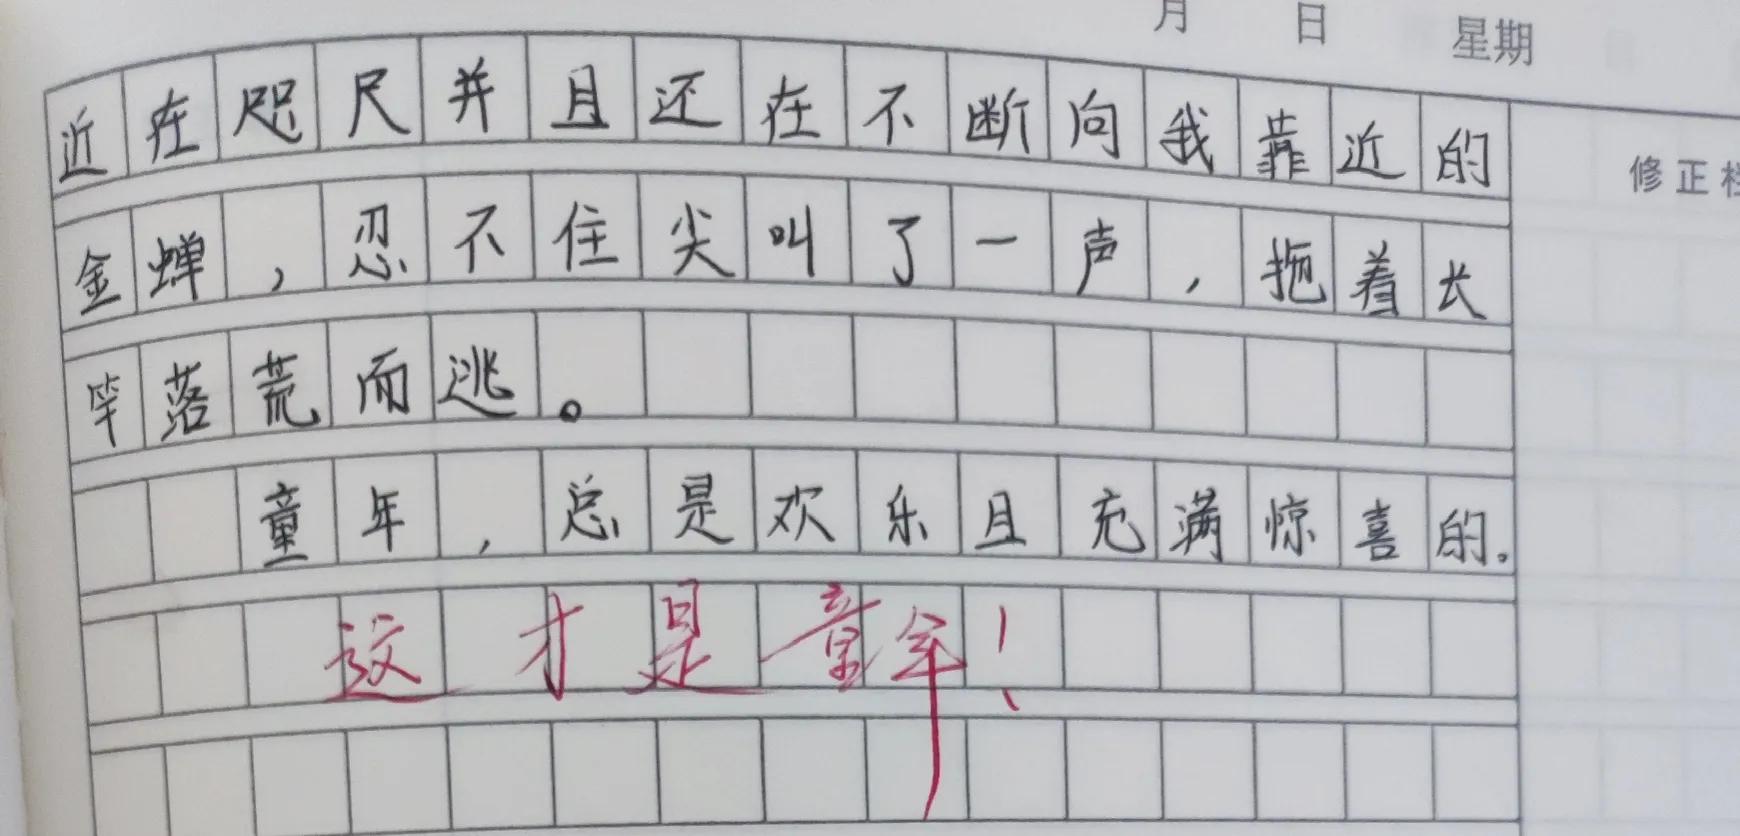 月 日 星期
近在咫尺并且还在不断向我靠近的
修正栏
金蝉，忍不住尖叫了一声，拖着长
竿落荒而逃。
童年，总是欢乐且充满惊喜的。
这才是童年！